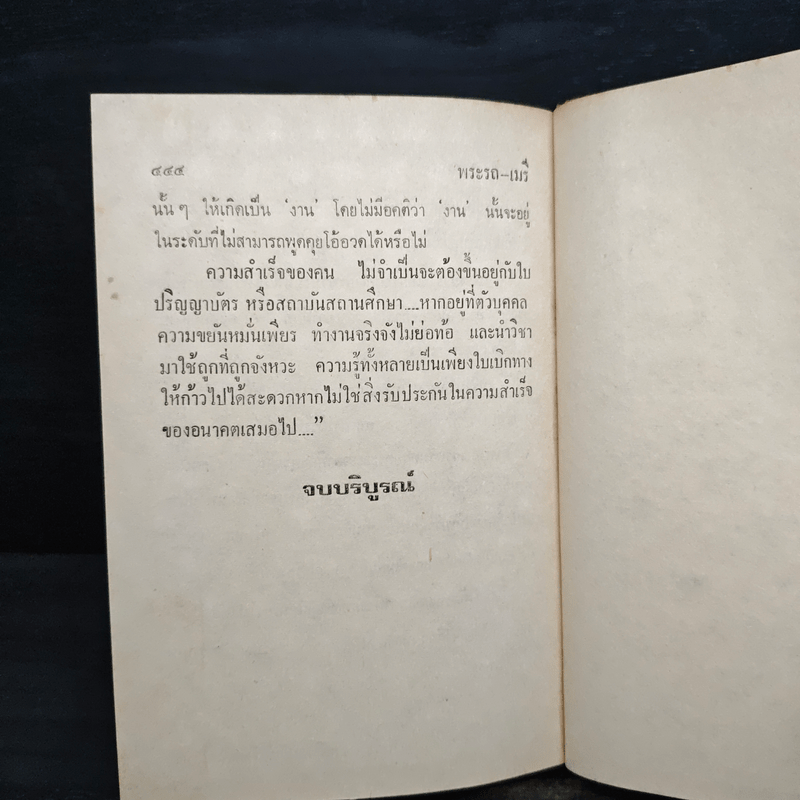 ๔๕๔ พระรถ-เมรี
นั้น ๆ ให้เกิดเป็น ‘งาน’ โดยไม่มีอคติว่า ‘งาน’ นั้นจะอยู่
ในระดับที่ไม่สามารถพูดคุยโอ้อวดได้หรือไม่
ความสำเร็จของคน ไม่จำเป็นจะต้องขึ้นอยู่กับใบ
ปริญญาบัตร หรือสถาบันสถานศึกษา....หากอยู่ที่ตัวบุคคล
ความขยันหมั่นเพียร ทำงานจริงจังไม่ย่อท้อ และนำวิชา
มาใช้ถูกที่ถูกจังหวะ ความรู้ทั้งหลายเป็นเพียงใบเบิกทาง
ให้ก้าวไปได้สะดวกหากไม่ใช่สิ่งรับประกันในความสำเร็จ
ของอนาคตเสมอไป....”
จบบริบูรณ์